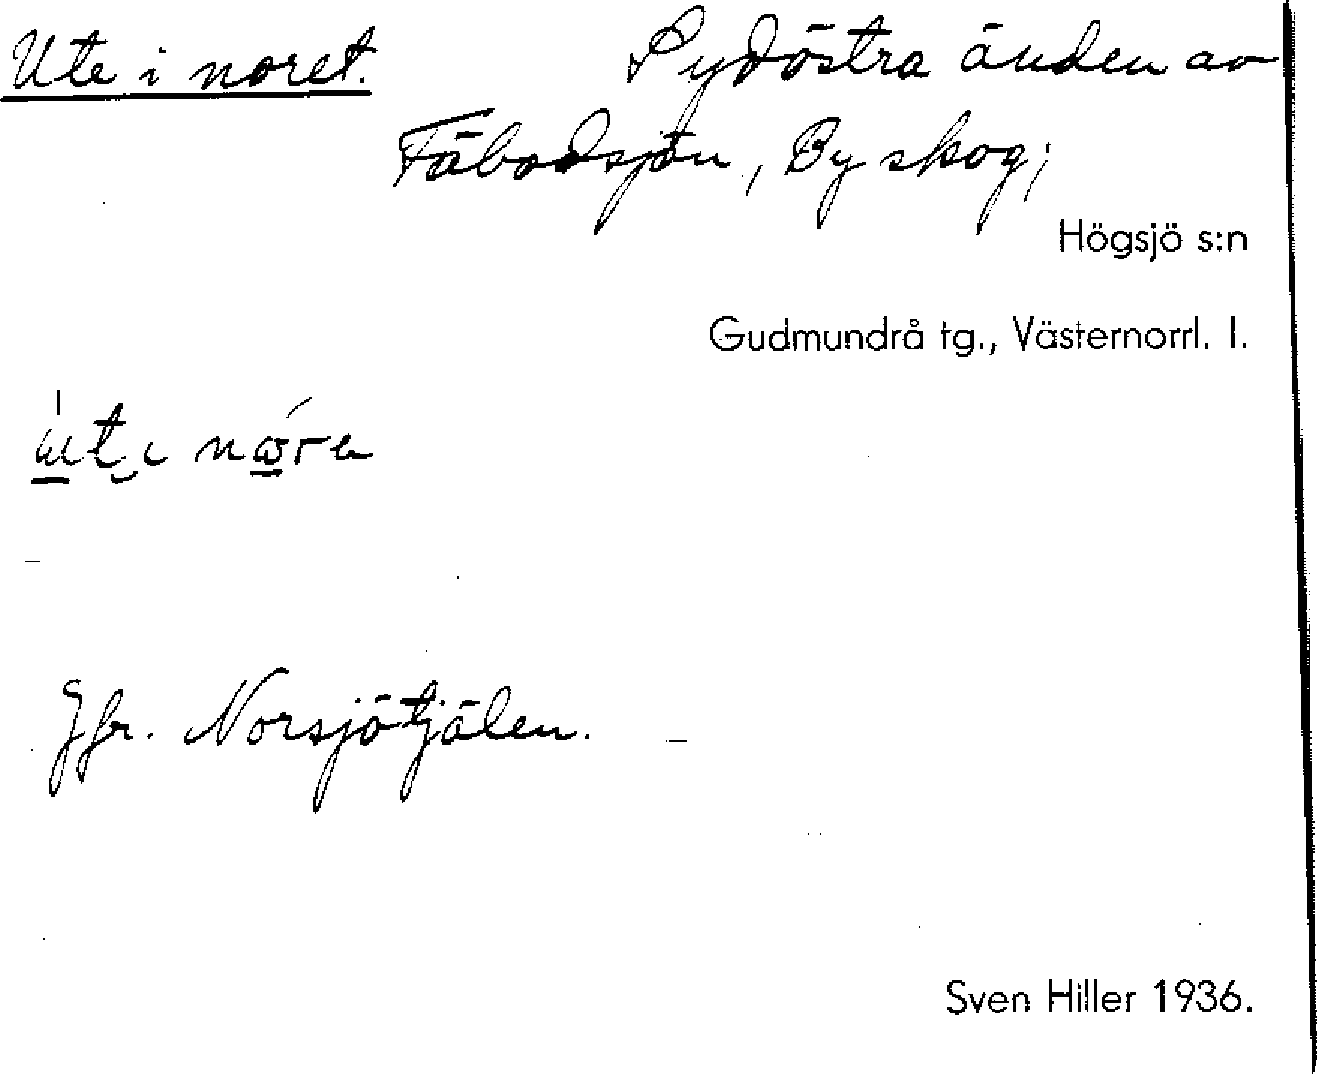 Ute i noret. Sydöstra änden av
Fäbodsjön, By skog;
Högsjö s:n
Gudmundrå tg., Västernorrl. l.
Jfr. Norsjötjälen.
Sven Hiller 1936.